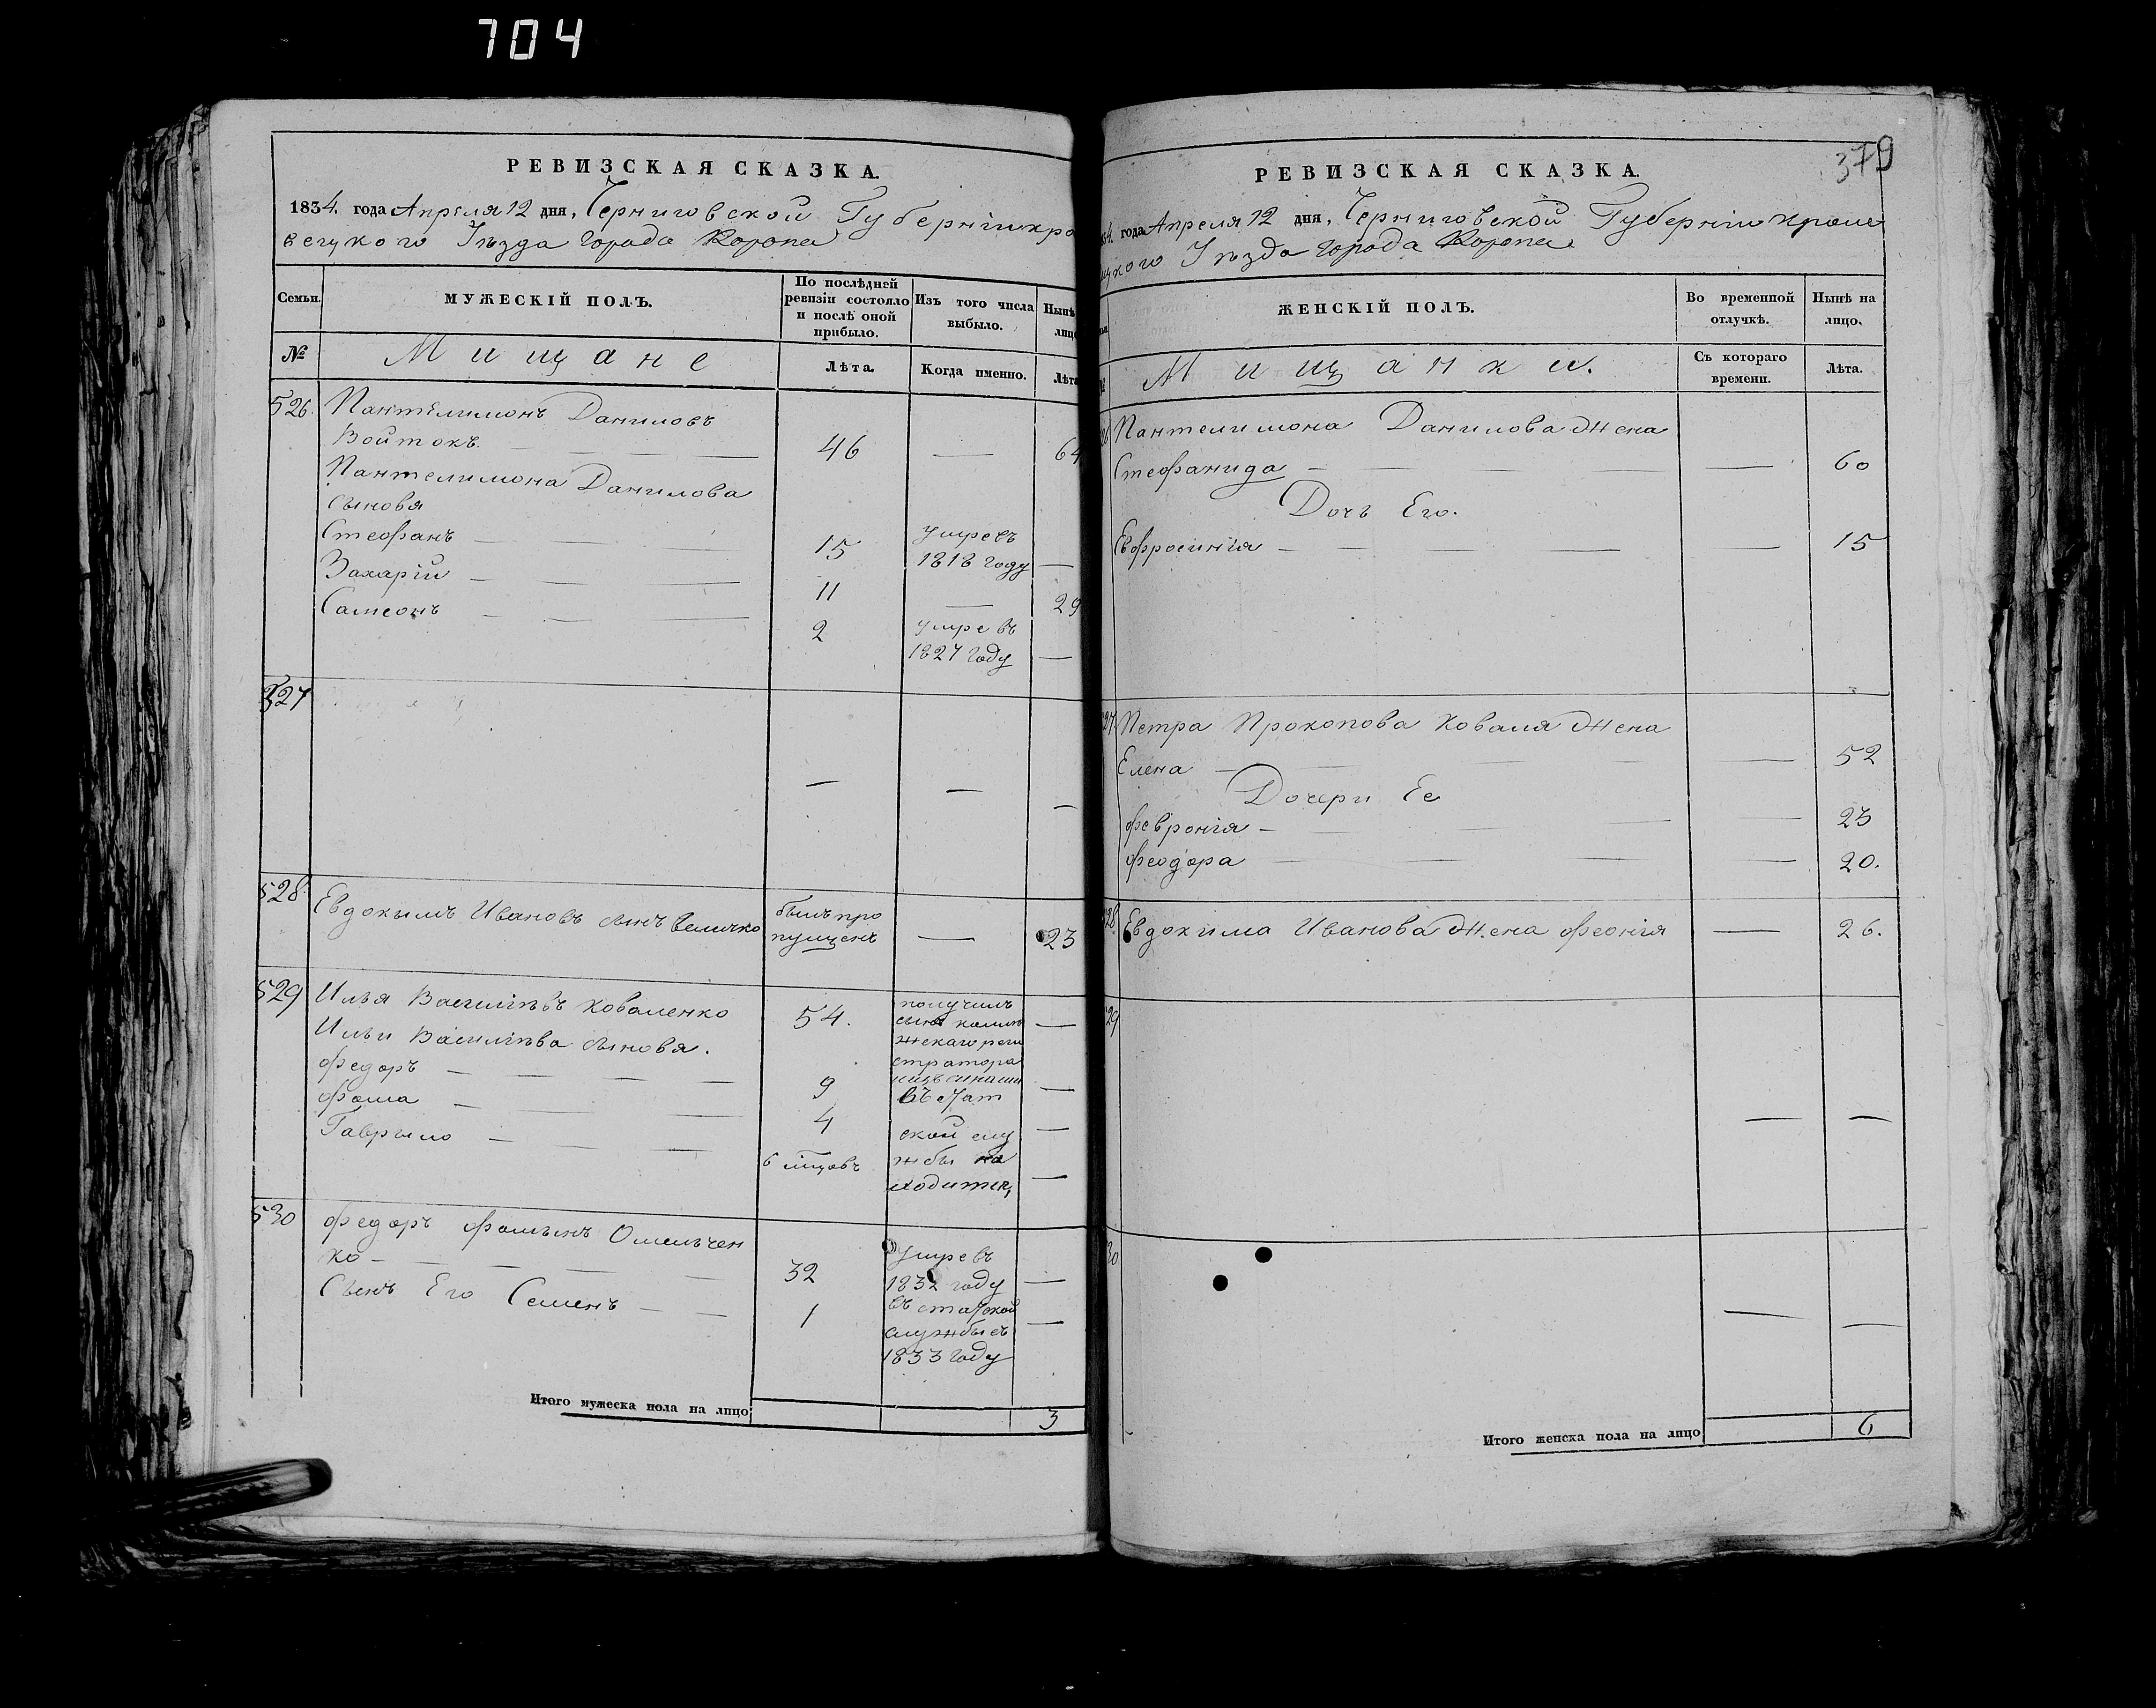 704
РЕВИЗСКАЯ СКАЗКА.
1834. года Апреля 12 дня, Черниговской Губернии кро
вецкого Уезда города Коропа
Семьи.
МУЖЕСКІЙ ПОЛЪ.
По послѣдней ревизіи состояло и послѣ оной прибыло.
Изъ того числа выбыло.
Нынѣ
лицо
№
Мищане
Лѣта.
Когда именно.
Лѣта
526. Пантелимонъ Даниловъ
Войтокъ 46 — 64
Пантелимона Данилова
сыновя
Стефанъ 15 умре въ
1818 году —
Захарій 11 — 29
Самсонъ 2 умре въ
1827 году —
527 — — —
528. Евдокимъ Ивановъ сынъ Величко былъ про
пущенъ — 23
529 Илья Василіевъ Коваленко 54. получилъ
Ильи Василіева сыновя.
Федоръ 9 —
Фома 4 —
Гаврыло 6 мцовъ —
стратора
въ Стат
ской слу
жбы на
ходится
530 Федоръ Фоминъ Омельчен
ко 32 умре въ
1832 году —
Сынъ Его Семенъ 1 въ статской
службы съ
1833 году —
Итого мужеска пола на лицо 3
379
РЕВИЗСКАЯ СКАЗКА.
34. года Апреля 12 дня, Черниговской Губернии Кроле
ецкого Уезда города Коропа
ЖЕНСКІЙ ПОЛЪ.
Во временной отлучкѣ.
Нынѣ на лицо.
Мищанки.
Съ котораго времени.
Лѣта.
26 Пантелимона Данилова Жена
Стефанида — 60
Дочь Его.
Евфросинія — 15
27. Петра Прокопова Коваля Жена
Елена — 52
Дочери Ее
Февронія — 23
Феодора — 20.
28 Евдокима Иванова Жена Феонія — 26.
29 — —
30 — —
Итого женска пола на лицо 6